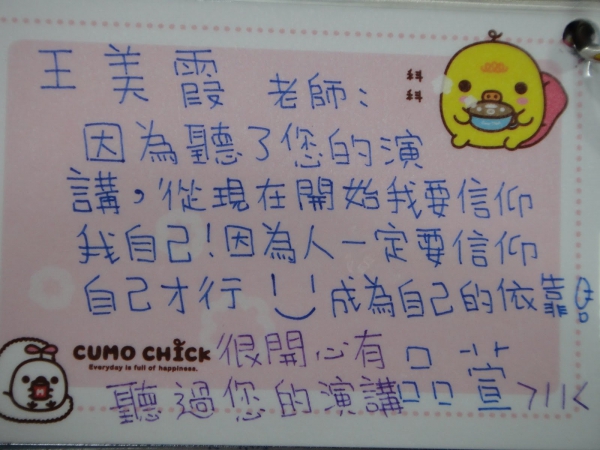 王美霞 老師：
因為聽了您的演
講，從現在開始我要信仰
我自己！因為人一定要信仰
自己才行！成為自己的依靠
CUMO CHICK
Everyday is full of happiness.
很開心有
聽過您的演講